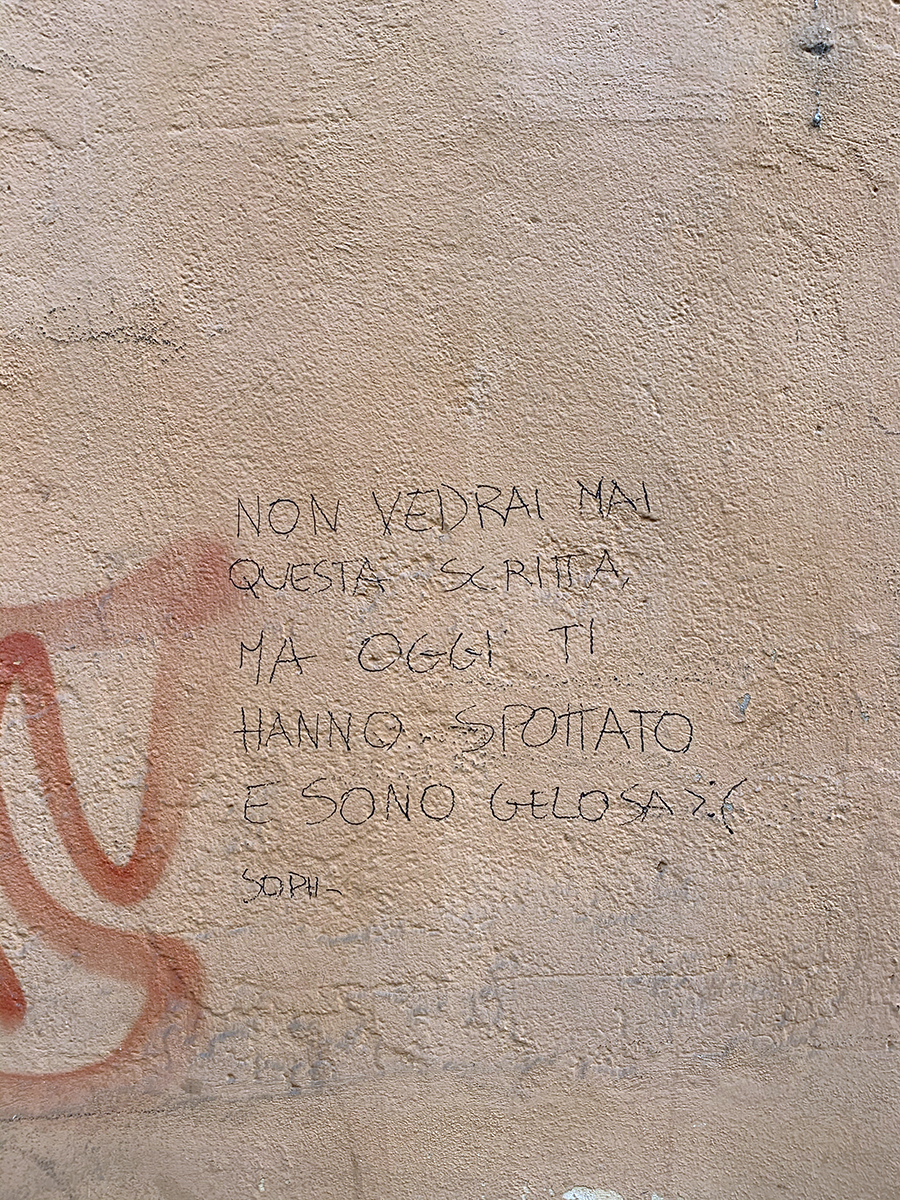 NON VEDRAI MAI
QUESTA SCRITTA,
MA OGGI TI
HANNO SPOTTATO
E SONO GELOSA >:(
SOPH-